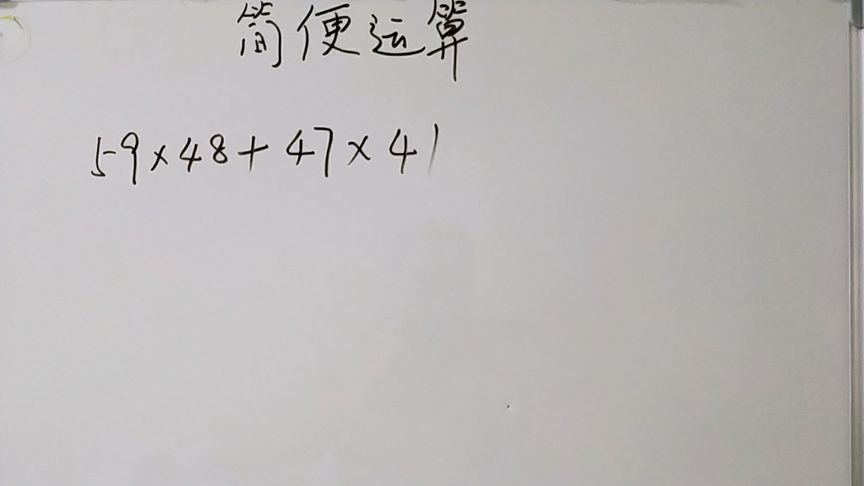 简便运算
59×48+47×41